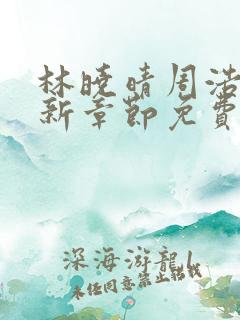 林晓晴周浩
新章节免费
深海游龙1
未经同意禁止转载